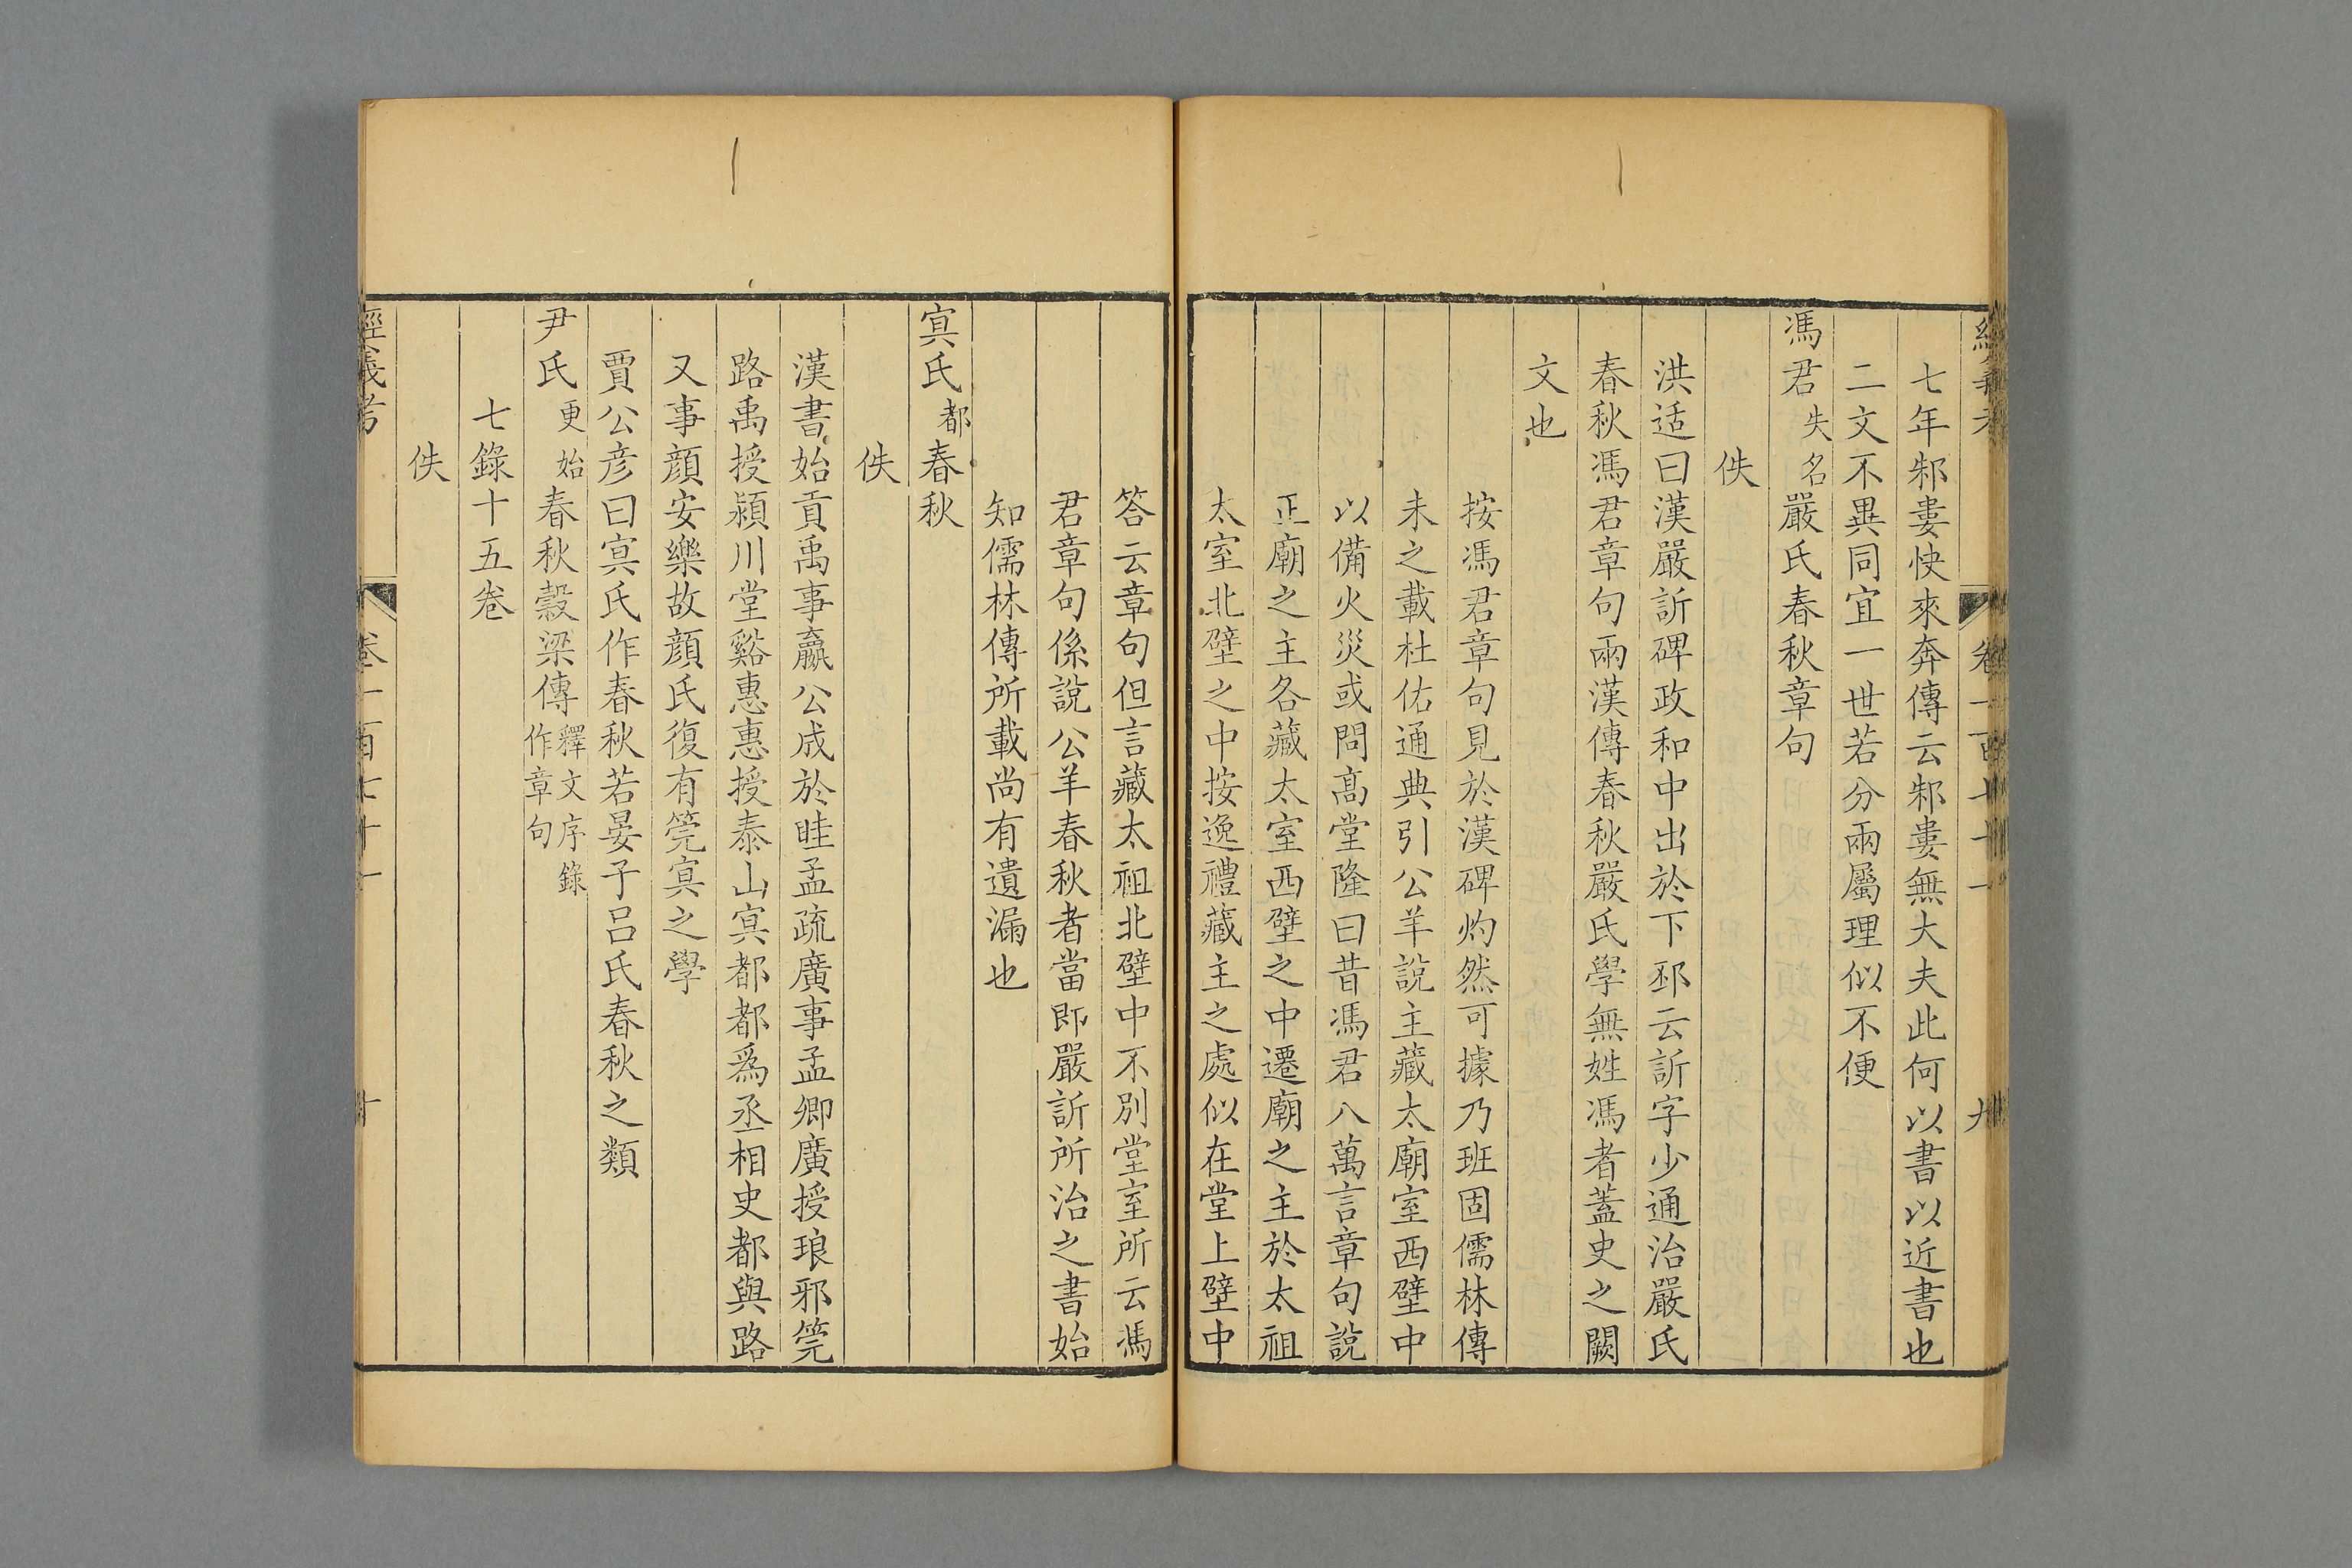 七年邾婁快來奔傳云邾婁無大夫此何以書以近書也
二文不異同宜一世若分兩屬理似不便
馮君失名嚴氏春秋章句
佚
洪适曰漢嚴訢碑政和中出於下邳云訢字少通治嚴氏
春秋馮君章句兩漢傳春秋嚴氏學無姓馮者蓋史之闕
文也
按馮君章句見於漢碑灼然可據乃班固儒林傳
未之載杜佑通典引公羊說主藏太廟室西壁中
以備火災或問高堂隆曰昔馮君八萬言章句說
正廟之主各藏太室西壁之中遷廟之主於太祖
太室北壁之中按逸禮藏主之處似在堂上壁中
答云章句但言藏太祖北壁中不別堂室所云馮
君章句係說公羊春秋者當即嚴訢所治之書始
知儒林傳所載尚有遺漏也
冥氏都春秋
佚
漢書始貢禹事嬴公成於眭孟疏廣事孟卿廣授琅邪筦
路禹授潁川堂谿惠惠授泰山冥都都為丞相史都與路
又事顏安樂故顏氏復有筦冥之學
賈公彥曰冥氏作春秋若晏子呂氏春秋之類
尹氏更始春秋穀梁傳釋文序錄作章句
七錄十五卷
佚
經義考